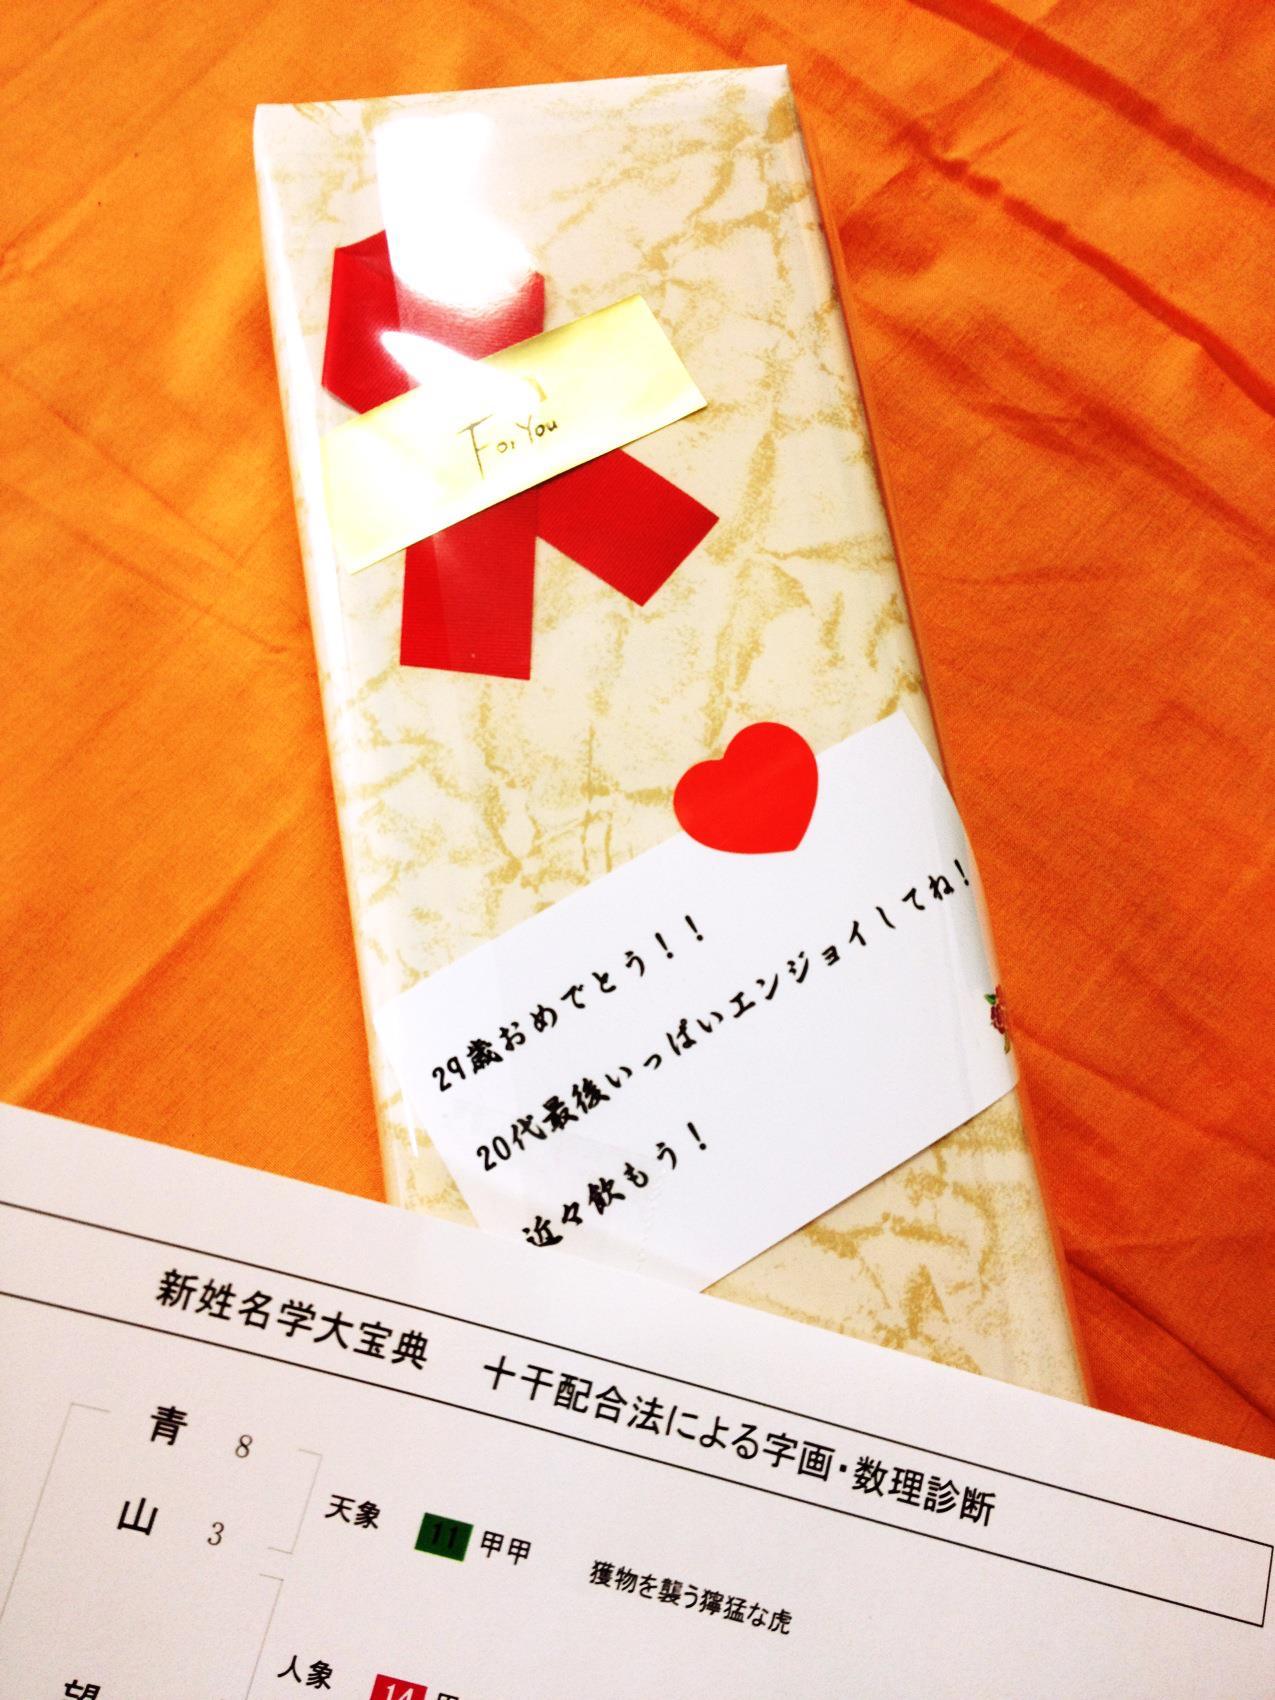 For You
29歳おめでとう！！
20代最後いっぱいエンジョイしてね！
近々飲もう！
新姓名学大宝典 十干配合法による字画・数理診断
青 8
山 3
天象 11 甲甲 獲物を襲う獰猛な虎
人象 14
望